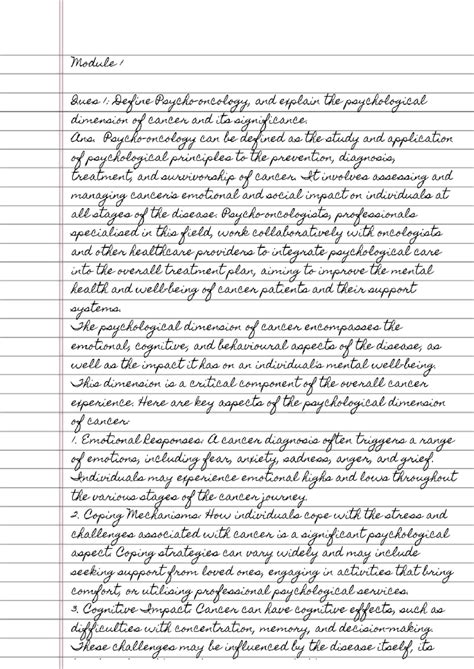 Module 1
Ques 1: Define Psycho-oncology, and explain the psychological
dimension of cancer and its significance.
Ans. Psycho-oncology can be defined as the study and application
of psychological principles to the prevention, diagnosis,
treatment, and survivorship of cancer. It involves assessing and
managing cancer's emotional and social impact on individuals at
all stages of the disease. Psycho-oncologists, professionals
specialised in this field, work collaboratively with oncologists
and other healthcare providers to integrate psychological care
into the overall treatment plan, aiming to improve the mental
health and well-being of cancer patients and their support
systems.
The psychological dimension of cancer encompasses the
emotional, cognitive, and behavioural aspects of the disease, as
well as the impact it has on an individual's mental well-being.
This dimension is a critical component of the overall cancer
experience. Here are key aspects of the psychological dimension
of cancer:
1. Emotional Responses: A cancer diagnosis often triggers a range
of emotions, including fear, anxiety, sadness, anger, and grief.
Individuals may experience emotional highs and lows throughout
the various stages of the cancer journey.
2. Coping Mechanisms: How individuals cope with the stress and
challenges associated with cancer is a significant psychological
aspect. Coping strategies can vary widely and may include
seeking support from loved ones, engaging in activities that bring
comfort, or utilising professional psychological services.
3. Cognitive Impact: Cancer can have cognitive effects, such as
difficulties with concentration, memory, and decision-making.
These challenges may be influenced by the disease itself, its